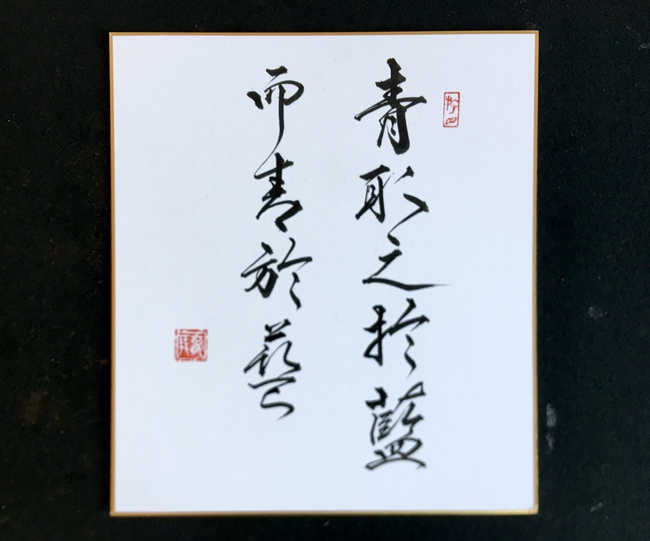 青取之於藍
而青於藍